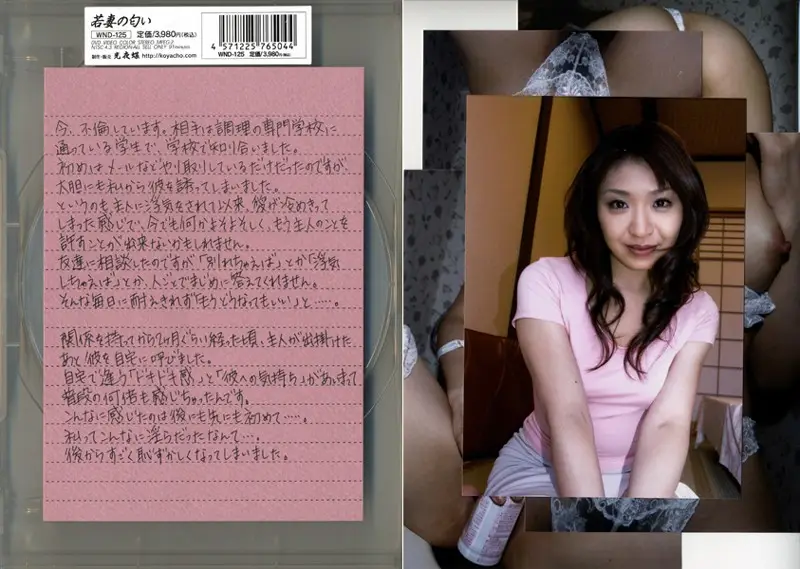 若妻の匂い
WND-125 定価/3,980円(税込)
DVD VIDEO COLOR STEREO
制作・販売 光夜蝶 http://koyacho.com
4 571225 765044
WND-125 定価/3,980円(税込)
今、不倫しています。相手は調理の専門学校に
通っている学生で、学校で知り合いました。
初めはメールなどやり取りしているだけだったのですが、
大胆にも私から彼を誘ってしまいました。
というのも主人に浮気をされて以来、彼が冷めきって
しまった感じで、今でも何かよそよそしく、もう主人のことを
許すことが出来ないかもしれません。
友達に相談したのですが「別れちゃえば」とか「浮気
しちゃえば」とか、人ごとでまじめに答えてくれません。
そんな毎日に耐えきれず「もうどうなってもいい」と……。
関係を持ってから2ヶ月ぐらい経った頃、主人が出掛けた
あと彼を自宅に呼びました。
自宅で違う「ドキドキ感」と「彼への気持ち」があいまって
普段の何倍も感じちゃったんです。
こんなに感じたのは後にも先にも初めて……。
私ってこんなに淫らだったなんて…。
後からすごく恥ずかしくなってしまいました。